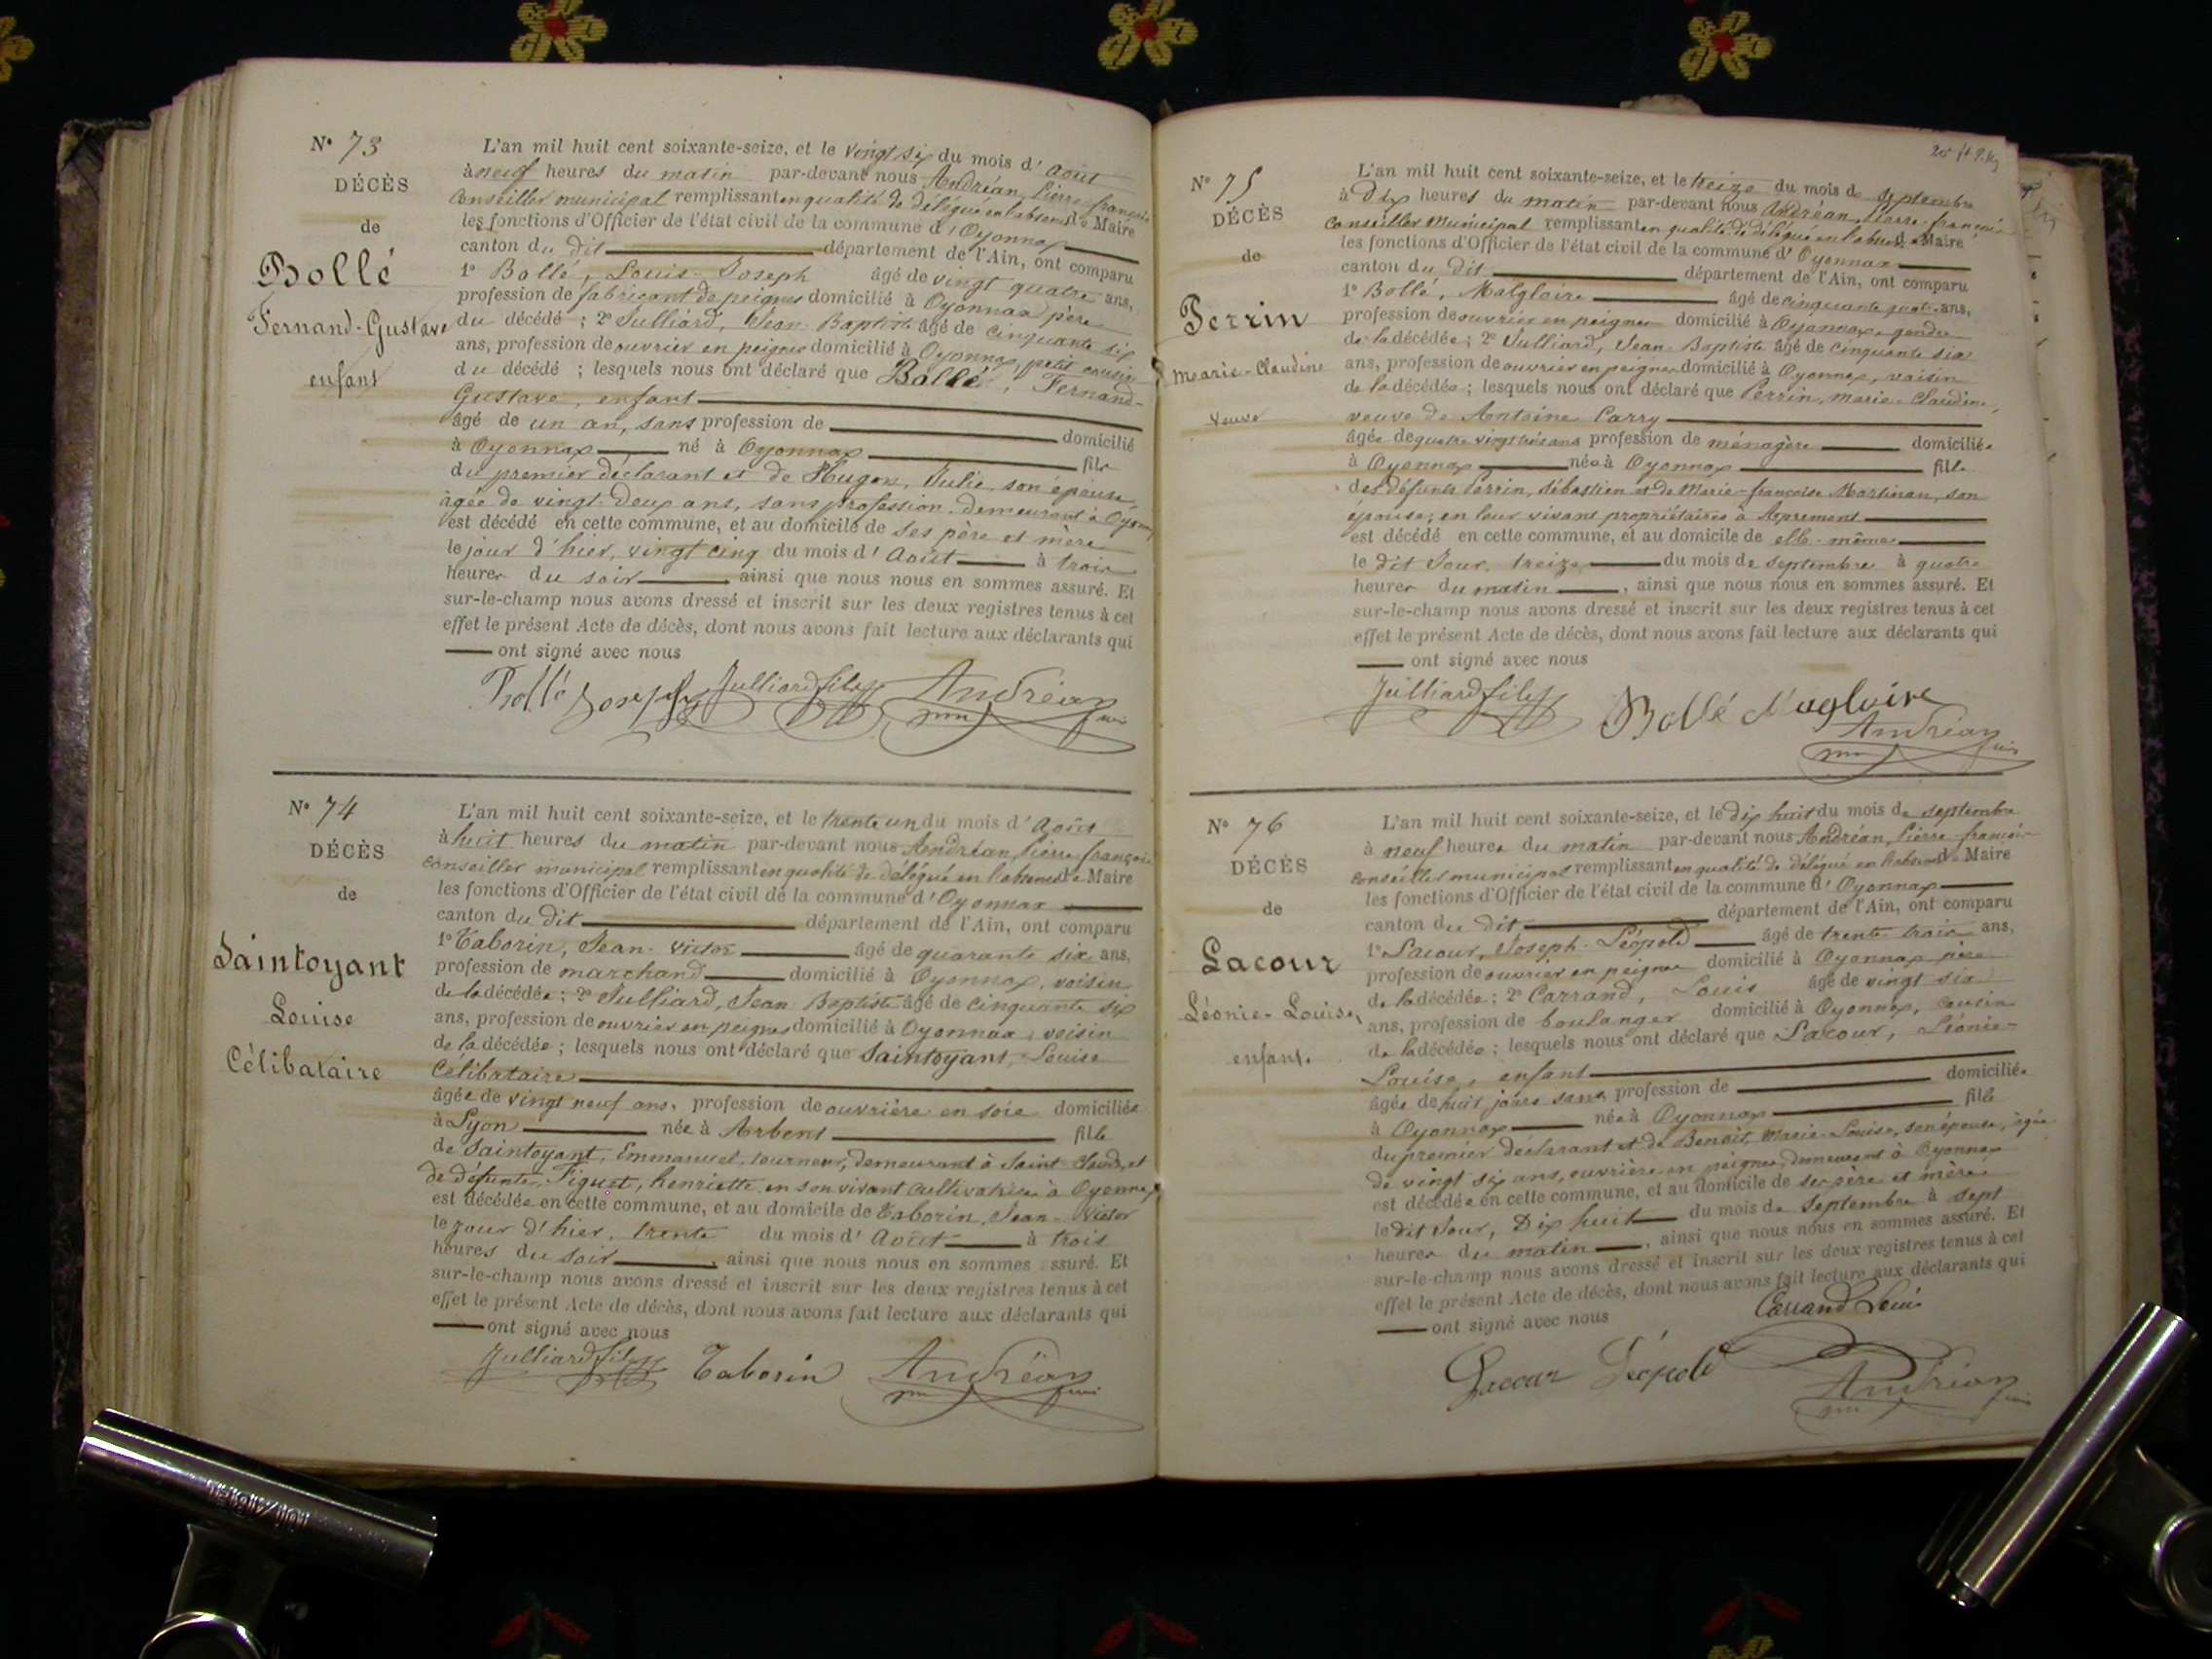 N° 73
DÉCÈS
de
Bollé
Fernand-Gustave
enfant
L'an mil huit cent soixante-seize, et le vingt six du mois d'Août
à neuf heures du matin par-devant nous Andréan, Pierre-françois
Conseiller municipal remplissant en qualité de délégué en l'absence de Maire
les fonctions d'Officier de l'état civil de la commune d'Oyonnax
canton du dit département de l'Ain, ont comparu
1° Bollé, Louis-Joseph âgé de vingt quatre ans,
profession de fabricant de peignes domicilié à Oyonnax père
du décédé ; 2° Julliard, Jean-Baptiste âgé de cinquante six
ans, profession de ouvrier en peignes domicilié à Oyonnax, petit cousin
du décédé ; lesquels nous ont déclaré que Bollé, Fernand-
Gustave, enfant
âgé de un an, sans profession de domicilié
à Oyonnax né à Oyonnax fils
du premier déclarant et de Hugon, Julie, son épouse,
âgée de vingt-deux ans, sans profession demeurant à Oyonnax
est décédé en cette commune, et au domicile de ses père et mère
le jour d'hier, vingt cinq du mois d'Août à trois
heures du soir ainsi que nous nous en sommes assuré. Et
sur-le-champ nous avons dressé et inscrit sur les deux registres tenus à cet
effet le présent Acte de décès, dont nous avons fait lecture aux déclarants qui
ont signé avec nous
Bollé Joseph Julliard fils Andréan
N° 74
DÉCÈS
de
Saintoyant
Louise
Célibataire
L'an mil huit cent soixante-seize, et le trente un du mois d'Août
à huit heures du matin par-devant nous Andréan, Pierre-françois
Conseiller municipal remplissant en qualité de délégué en l'absence de Maire
les fonctions d'Officier de l'état civil de la commune d'Oyonnax
canton du dit département de l'Ain, ont comparu
1° Taborin, Jean-Victor âgé de quarante six ans,
profession de marchand domicilié à Oyonnax, voisin
de la décédée ; 2° Julliard, Jean-Baptiste âgé de cinquante six
ans, profession de ouvrier en peignes domicilié à Oyonnax, voisin
de la décédée ; lesquels nous ont déclaré que Saintoyant, Louise
Célibataire
âgée de vingt neuf ans, profession de ouvrière en soie domiciliée
à Lyon née à Arbent fille
de Saintoyant, Emmanuel, tourneur, demeurant à Saint-Claude, et
de défunte Figuet, henriette en son vivant cultivatrice à Oyonnax
est décédée en cette commune, et au domicile de Taborin, Jean-Victor
le jour d'hier, trente du mois d'Août à trois
heures du soir, ainsi que nous nous en sommes assuré. Et
sur-le-champ nous avons dressé et inscrit sur les deux registres tenus à cet
effet le présent Acte de décès, dont nous avons fait lecture aux déclarants qui
ont signé avec nous
Julliard fils Taborin Andréan
N° 75
DÉCÈS
de
Perrin
Marie-Claudine
veuve
L'an mil huit cent soixante-seize, et le treize du mois de septembre
à dix heures du matin par-devant nous Andréan, Pierre-françois
Conseiller Municipal remplissant en qualité de délégué en l'absence de Maire
les fonctions d'Officier de l'état civil de la commune d'Oyonnax
canton du dit département de l'Ain, ont comparu
1° Bollé, Malgloire âgé de cinquante quatre ans,
profession de ouvrier en peignes domicilié à Oyonnax, gendre
de la décédée ; 2° Julliard, Jean-Baptiste âgé de cinquante six
ans, profession de ouvrier en peignes domicilié à Oyonnax, voisin
de la décédée ; lesquels nous ont déclaré que Perrin, Marie-Claudine,
veuve de Antoine Carry
âgée de quatre vingt ans profession de ménagère domiciliée
à Oyonnax née à Oyonnax fille
des défunts Perrin, Sébastien et de Marie-françoise Martinan, son
épouse, en leur vivant propriétaires à Apremont
est décédé en cette commune, et au domicile de elle-même
le dit Jour, treize du mois de septembre à quatre
heures du matin, ainsi que nous nous en sommes assuré. Et
sur-le-champ nous avons dressé et inscrit sur les deux registres tenus à cet
effet le présent Acte de décès, dont nous avons fait lecture aux déclarants qui
ont signé avec nous
Julliard fils Bollé Magloire
Andréan
N° 76
DÉCÈS
de
Lacour
Léonie-Louise,
enfant.
L'an mil huit cent soixante-seize, et le dix huit du mois de septembre
à neuf heures du matin par-devant nous Andréan, Pierre-françois
Conseiller municipal remplissant en qualité de délégué en l'absence de Maire
les fonctions d'Officier de l'état civil de la commune d'Oyonnax
canton du dit département de l'Ain, ont comparu
1° Lacour, Joseph-Léopold âgé de trente-trois ans,
profession de ouvrier en peignes domicilié à Oyonnax père
de la décédée ; 2° Carrand, Louis âgé de vingt six
ans, profession de boulanger domicilié à Oyonnax, cousin
de la décédée ; lesquels nous ont déclaré que Lacour, Léonie-
Louise, enfant
âgée de huit jours sans profession de domiciliée
à Oyonnax née à Oyonnax fille
du premier déclarant et de Benoit, Marie-Louise, son épouse, âgée
de vingt six ans, ouvrière en peignes, demeurant à Oyonnax
est décédée en cette commune, et au domicile de ses père et mère
le dit Jour, Dix huit du mois de Septembre à sept
heures du matin, ainsi que nous nous en sommes assuré. Et
sur-le-champ nous avons dressé et inscrit sur les deux registres tenus à cet
effet le présent Acte de décès, dont nous avons fait lecture aux déclarants qui
ont signé avec nous
Carrand Louis
Lacour Léopold
Andréan